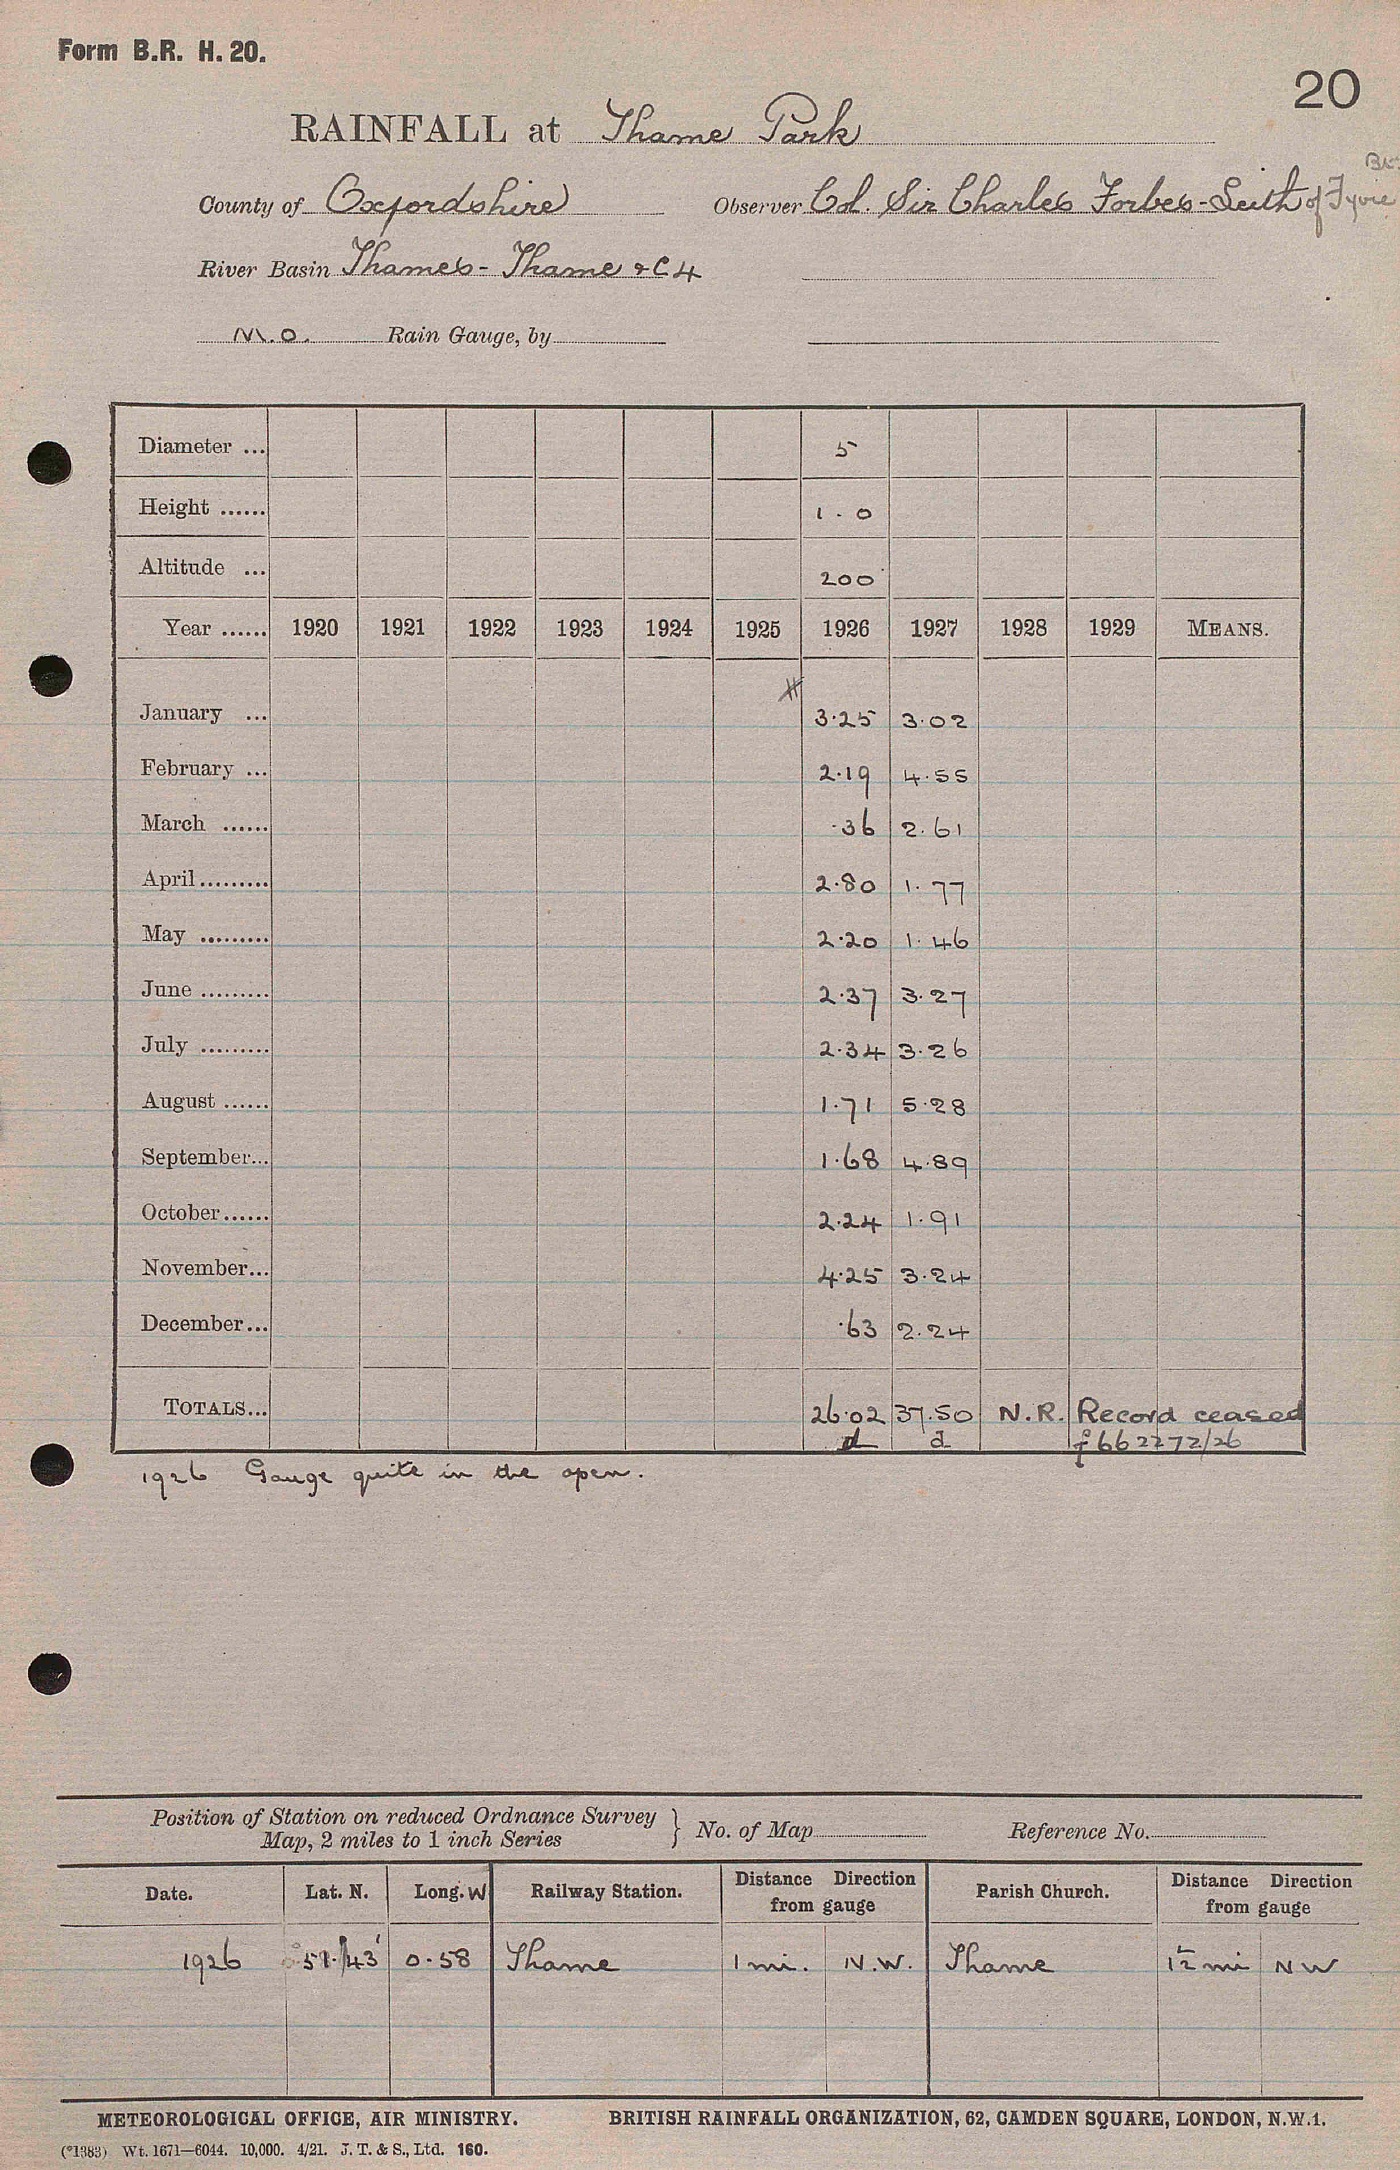 Form B.R. H. 20.
20
RAINFALL at Thame Park
County of Oxfordshire Observer Col. Sir Charles Forbes-Leith of Fyvie
River Basin Thames - Thame & C 4
M.O. Rain Gauge, by
Diameter ... 5
Height ...... 1 . 0
Altitude ... 200
Year ...... 1920 1921 1922 1923 1924 1925 1926 1927 1928 1929 MEANS.
January ... 3.25 3.02
February ... 2.19 4.55
March ...... .36 2.61
April ......... 2.80 1.77
May ......... 2.20 1.46
June ......... 2.37 3.27
July ......... 2.34 3.26
August ...... 1.71 5.28
September... 1.68 4.89
October...... 2.24 1.91
November... 4.25 3.24
December... .63 2.24
TOTALS... 26.02 37.50 N.R. Record ceased
d d f 662272/26
1926 Gauge quite in the open.
Position of Station on reduced Ordnance Survey
Map, 2 miles to 1 inch Series } No. of Map Reference No.
Date. Lat. N. Long. W Railway Station. Distance Direction from gauge Parish Church. Distance Direction from gauge
1926 51. 43' 0.58 Thame 1 mi. N.W. Thame 1½ mi N W
METEOROLOGICAL OFFICE, AIR MINISTRY. BRITISH RAINFALL ORGANIZATION, 62, CAMDEN SQUARE, LONDON, N.W.1.
(*1383) Wt. 1671—6044. 10,000. 4/21. J. T. & S., Ltd. 160.